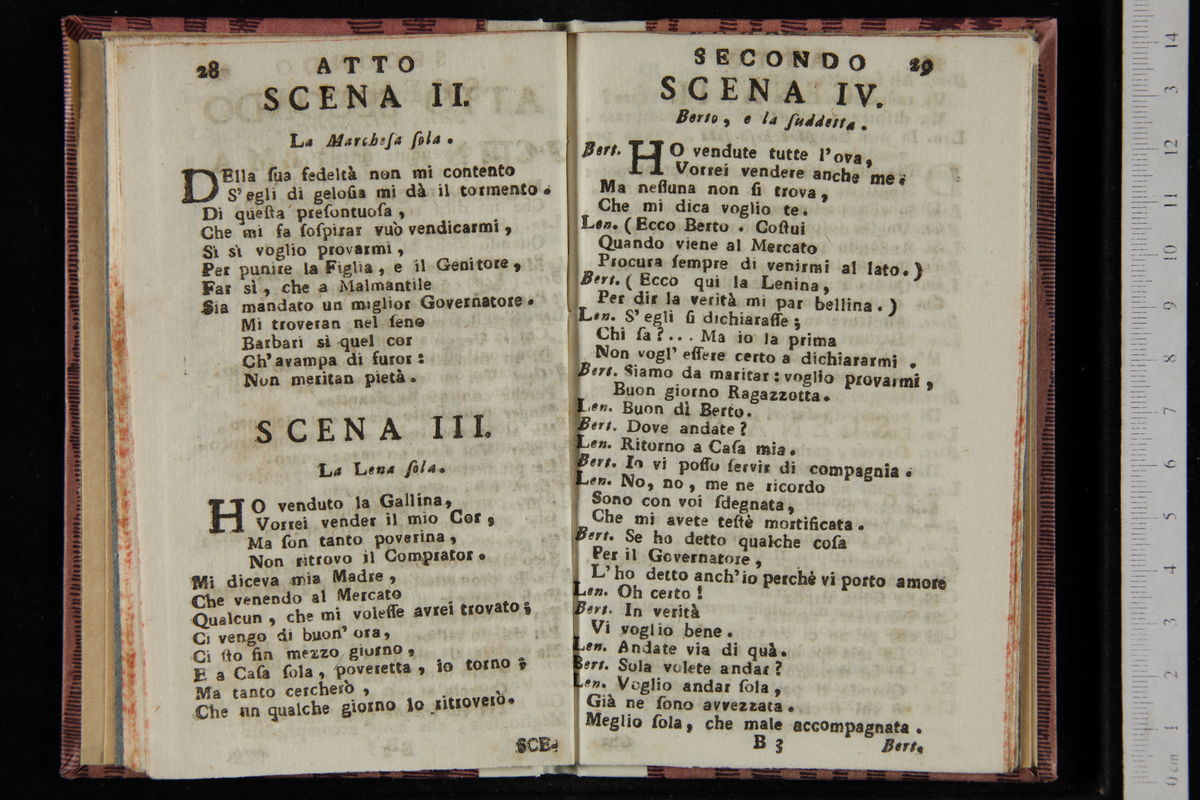 28 ATTO
SCENA II.
La Marcheſa ſola.
DElla ſua fedeltà non mi contento
S'egli di geloſia mi dà il tormento.
Di queſta preſontuoſa,
Che mi fa ſoſpirar vuò vendicarmi,
Sì sì voglio provarmi,
Per punire la Figlia, e il Genitore,
Far sì, che a Malmantile
Sia mandato un miglior Governatore.
Mi troveran nel ſeno
Barbari sì quel cor
Ch'avampa di furor:
Non meritan pietà.
SCENA III.
La Lena ſola.
HO venduto la Gallina,
Vorrei vender il mio Cor,
Ma ſon tanto poverina,
Non ritrovo il Comprator.
Mi diceva mia Madre,
Che venendo al Mercato
Qualcun, che mi voleſſe avrei trovato;
Ci vengo di buon' ora,
Ci ſto fin mezzo giorno,
E a Caſa ſola, poveretta, io torno;
Ma tanto cercherò,
Che un qualche giorno lo ritroverò.
SCE-
SECONDO 29
SCENA IV.
Berto, e la ſuddetta.
Bert. HO vendute tutte l'ova,
Vorrei vendere anche me:
Ma neſſuna non ſi trova,
Che mi dica voglio te.
Len. (Ecco Berto. Coſtui
Quando viene al Mercato
Procura ſempre di venirmi al lato.)
Bert. (Ecco qui la Lenina,
Per dir la verità mi par bellina.)
Len. S'egli ſi dichiaraſſe;
Chi ſa?... Ma io la prima
Non vogl' eſſere certo a dichiararmi.
Bert. Siamo da maritar: voglio provarmi,
Buon giorno Ragazzotta.
Len. Buon dì Berto.
Bert. Dove andate?
Len. Ritorno a Caſa mia.
Bert. Io vi poſſo ſervir di compagnia.
Len. No, no, me ne ricordo
Sono con voi ſdegnata,
Che mi avete teſtè mortificata.
Bert. Se ho detto qualche coſa
Per il Governatore,
L'ho detto anch'io perchè vi porto amore
Len. Oh certo!
Bert. In verità
Vi voglio bene.
Len. Andate via di quà.
Bert. Sola volete andar?
Len. Voglio andar ſola,
Già ne ſono avvezzata.
Meglio ſola, che male accompagnata.
B 3 Bert.
0 cm 1 2 3 4 5 6 7 8 9 10 11 12 3 14